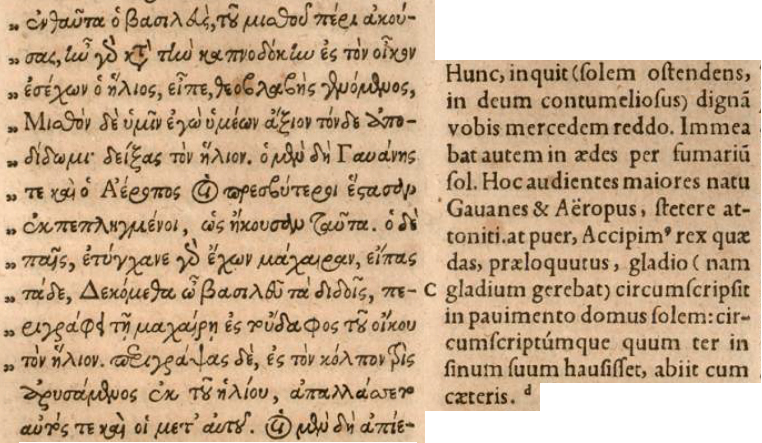 „ ἐνθαῦτα ὁ βασιλεὺς, τοῦ μισθοῦ πέρι ἀκού-
„ σας, ἦν γὰρ κατὰ τὴν καπνοδόκην ἐς τὸν οἶκον
„ ἐσέχων ὁ ἥλιος, εἶπε, θεοβλαβὴς γενόμενος,
„ Μισθὸν δὲ ὑμῖν ἐγὼ ὑμέων ἄξιον τόνδε ἀπο-
„ δίδωμι· δείξας τὸν ἥλιον. ὁ μὲν δὴ Γαυάνης
„ τε καὶ ὁ Ἀέροπος οἱ πρεσβύτεροι ἕστασαν
„ ἐκπεπληγμένοι, ὡς ἤκουσαν ταῦτα. ὁ δὲ
„ παῖς, ἐτύγχανε γὰρ ἔχων μάχαιραν, εἴπας
„ τάδε, Δεκόμεθα ὦ βασιλεῦ τὰ διδοῖς, πε-
„ ριγράφει τῇ μαχαίρῃ ἐς τὸ ἔδαφος τοῦ οἴκου
„ τὸν ἥλιον. περιγράψας δὲ, ἐς τὸν κόλπον τρὶς
„ ἀρυσάμενος ἐκ τοῦ ἡλίου, ἀπαλλάσσετο
αὐτός τε καὶ οἱ μετ' αὐτοῦ. οἱ μὲν δὴ ἀπίε-
Hunc, inquit (solem ostendens,
in deum contumeliosus) dignã
vobis mercedem reddo. Immea
bat autem in ædes per fumariũ
sol. Hoc audientes maiores natu
Gauanes & Aëropus, stetere at-
toniti. at puer, Accipimꝰ rex quæ
das, præloquutus, gladio ( nam
C gladium gerebat) circumscripsit
in pauimento domus solem: cir-
cumscriptúmque quum ter in
sinum suum hausisset, abiit cum
cæteris. d